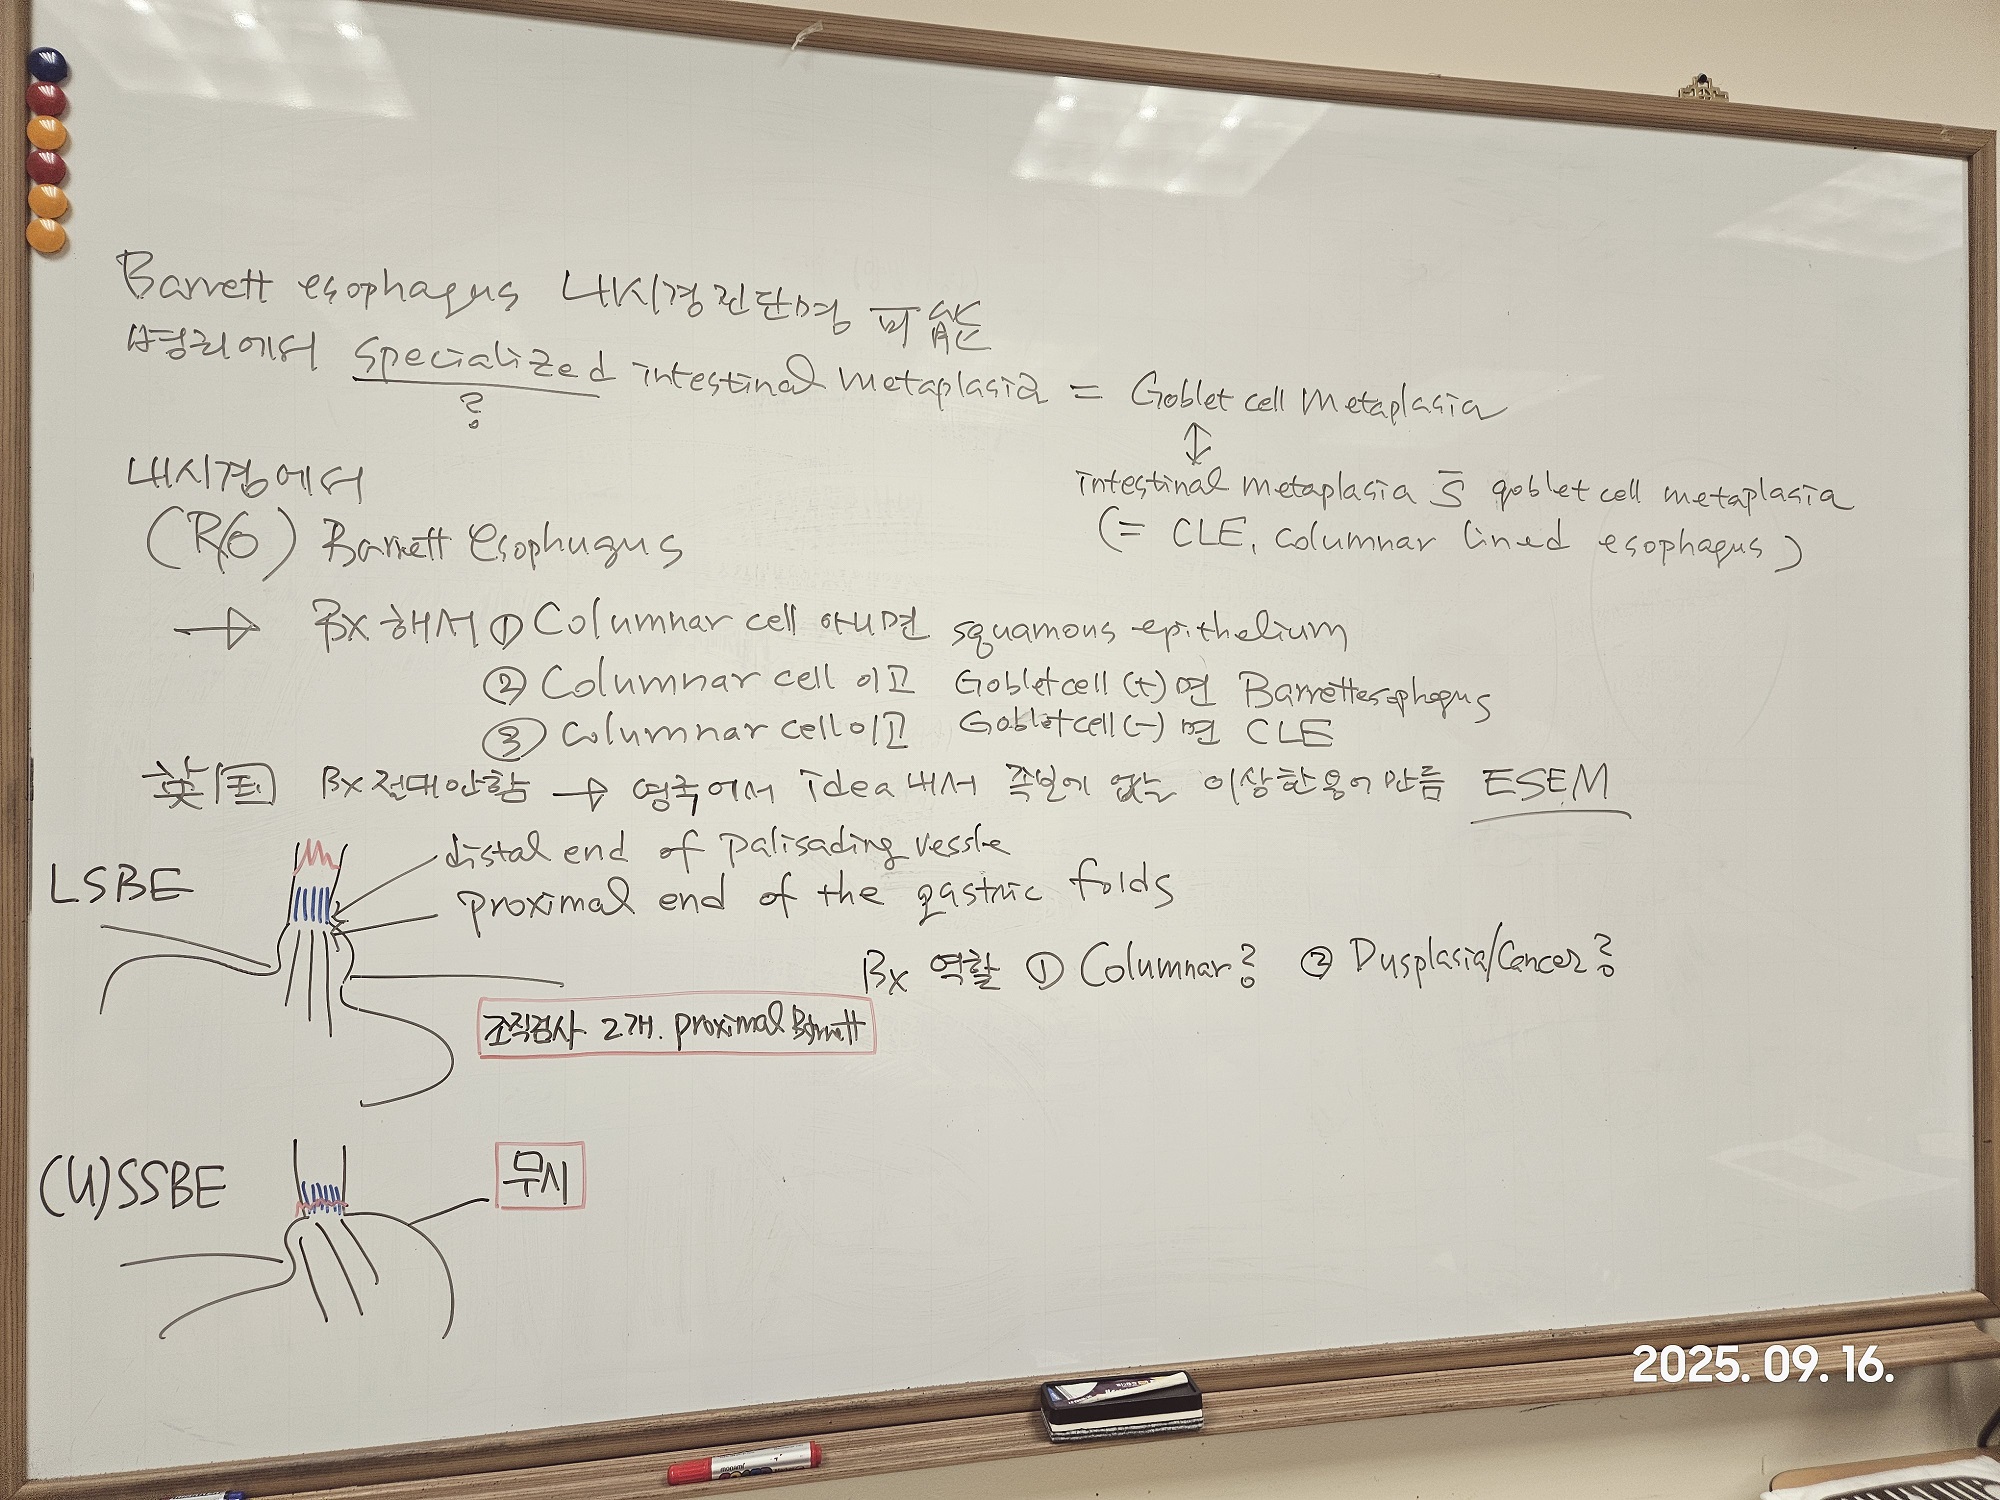 Barrett esophagus 내시경진단명 피함
병리에서 specialized intestinal metaplasia = Goblet cell metaplasia
?
↕
내시경에서
intestinal metaplasia s̄ goblet cell metaplasia
(R/O) Barrett Esophugus
(= CLE, columnar lined esophagus)
→ Bx 해서 ① Columnar cell 아니면 squamous epithelium
② Columnar cell 이고 Goblet cell (+)면 Barrett esophagus
③ Columnar cell이고 Goblet cell (-)면 CLE
英国 Bx 절대안함 → 영국에서 idea내서 족보에 없는 이상한 용어 만듦 ESEM
LSBE
distal end of palisading vessle
proximal end of the gastric folds
Bx 역할 ① Columnar? ② Dysplasia/Cancer?
조직검사 2개. proximal Barrett
(U)SSBE
무시
2025. 09. 16.